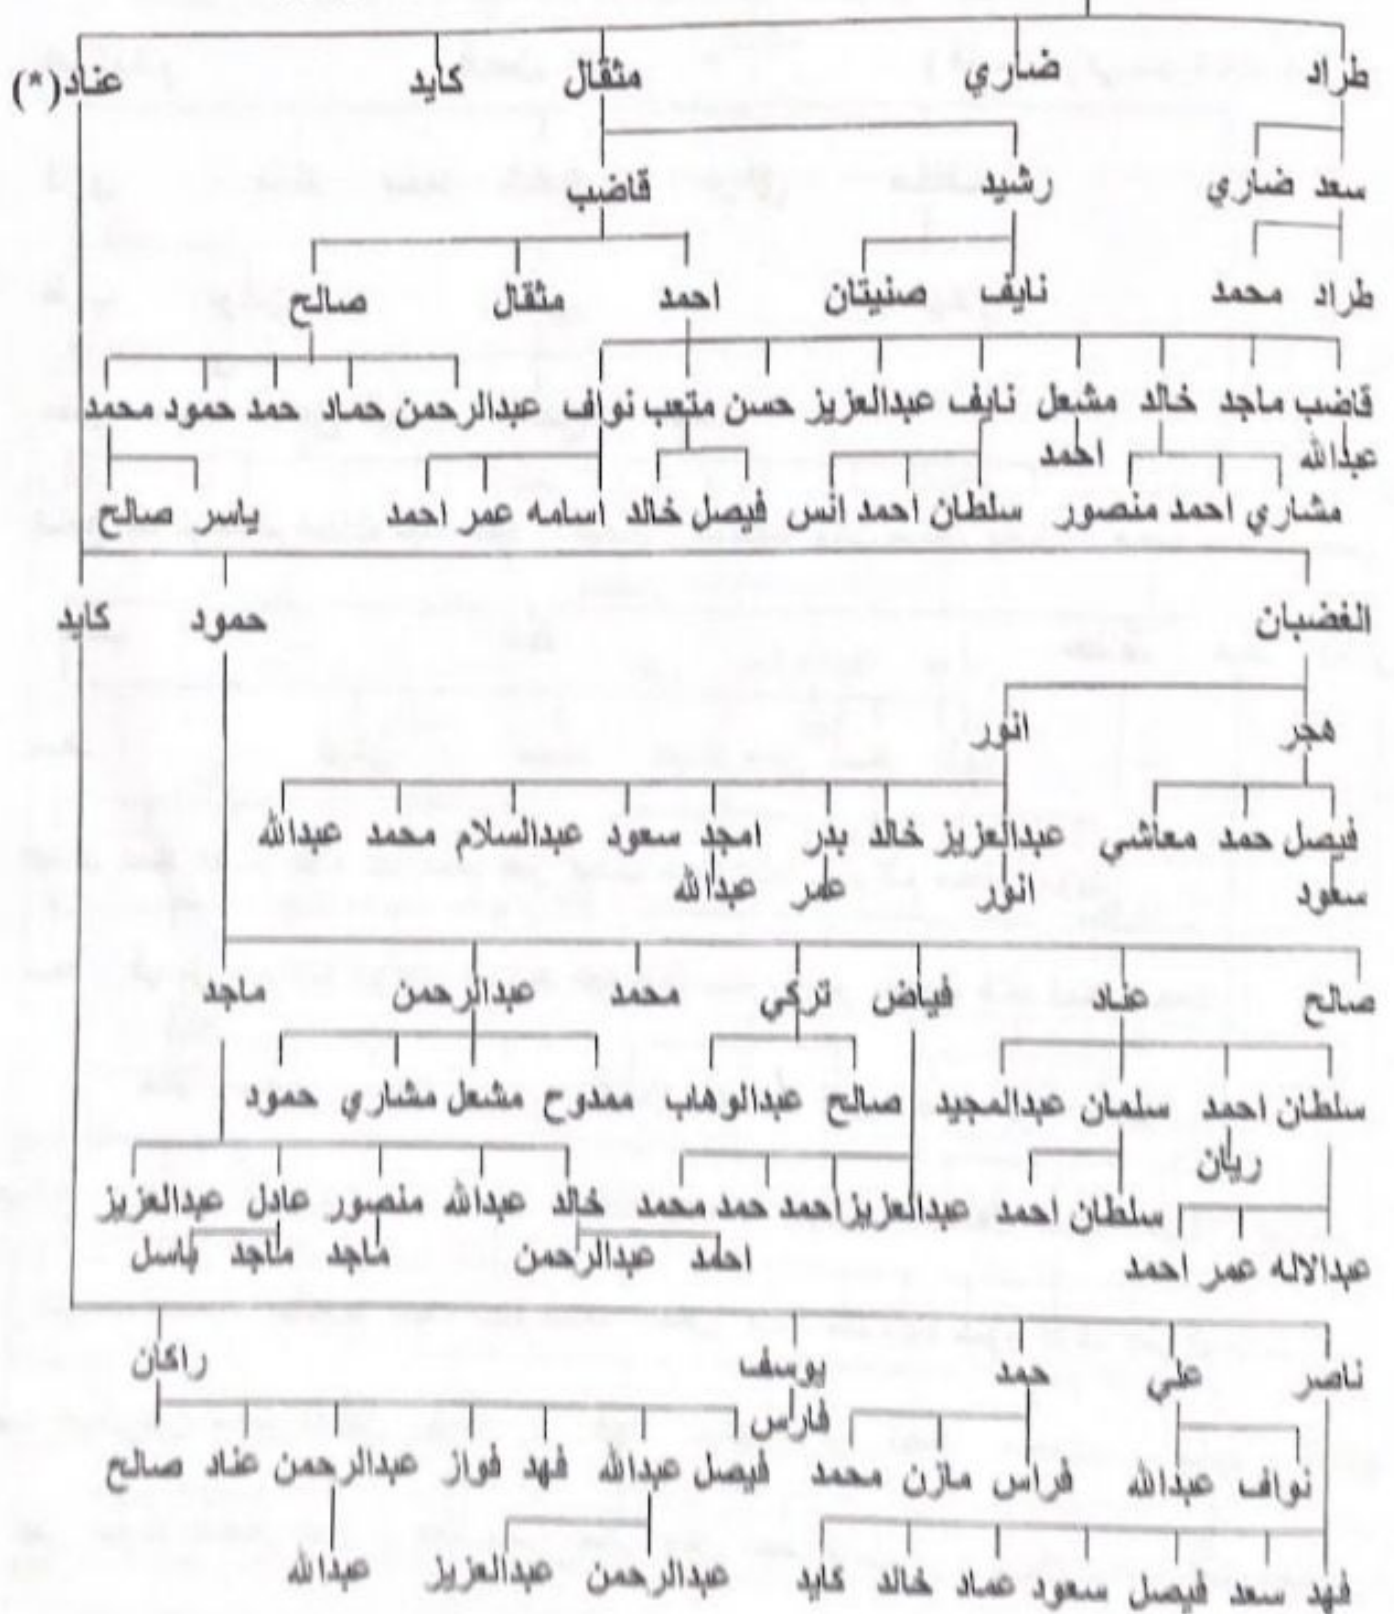 طراد ضاري مثقال كايد عناد(*)
سعد ضاري رشيد قاضب
طراد محمد نايف صنيتان احمد مثقال صالح
قاضب ماجد خالد مشعل نايف عبدالعزيز حسن متعب نواف عبدالرحمن حماد حمد حمود محمد
عبدالله احمد
مشاري احمد منصور سلطان احمد انس فيصل خالد اسامه عمر احمد ياسر صالح
الغضبان حمود كايد
هجر انور
فيصل حمد معاشي عبدالعزيز خالد بدر امجد سعود عبدالسلام محمد عبدالله
سعود انور عمر عبدالله
صالح عناد فياض تركي محمد عبدالرحمن ماجد
سلطان احمد سلمان عبدالمجيد صالح عبدالوهاب ممدوح مشعل مشاري حمود
ريان
سلطان احمد عبدالعزيز احمد حمد محمد خالد عبدالله منصور عادل عبدالعزيز
عبدالاله عمر احمد احمد عبدالرحمن ماجد ماجد باسل
ناصر علي حمد يوسف راكان
فارس
نواف عبدالله فراس مازن محمد فيصل عبدالله فهد فواز عبدالرحمن عناد صالح
فهد سعد فيصل سعود عماد خالد كايد عبدالرحمن عبدالعزيز عبدالله